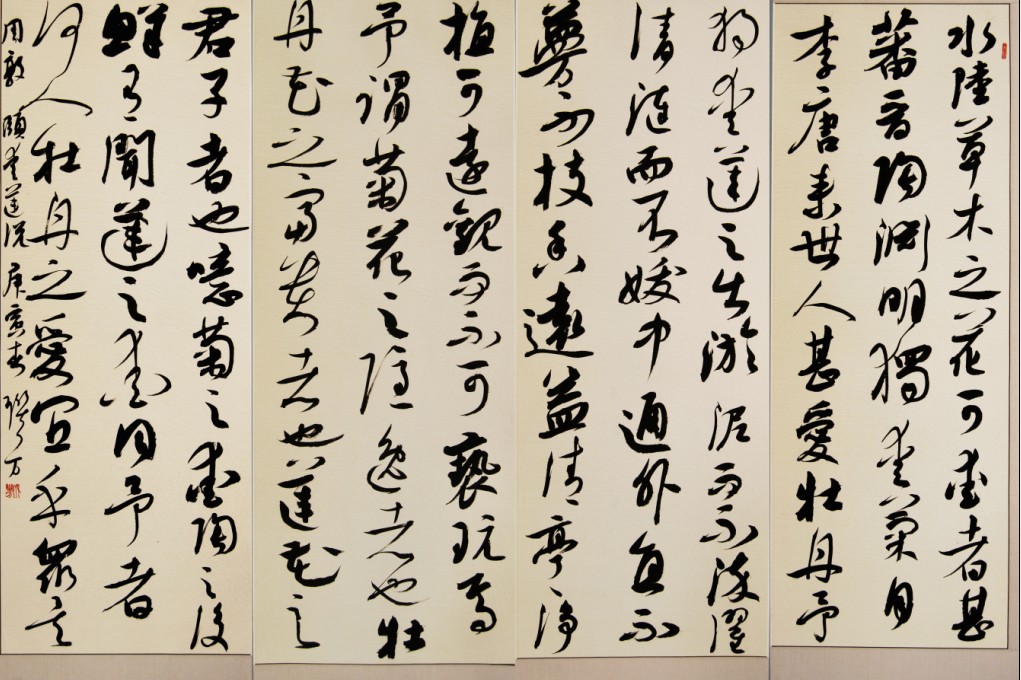 水陸草木之花可愛者甚
蕃晉陶淵明獨愛菊自
李唐来世人甚愛牡丹予
獨愛蓮之出淤泥而不染濯
清漣而不妖中通外直不
蔓不枝香遠益清亭々淨
植可遠觀而不可褻玩焉
予謂菊花之隱逸者也牡
丹花之富貴者也蓮花之
君子者也噫菊之愛陶之後
鮮有聞蓮之愛同予者
何人牡丹之愛宜乎眾矣
周敦頤愛蓮説 庚寅春